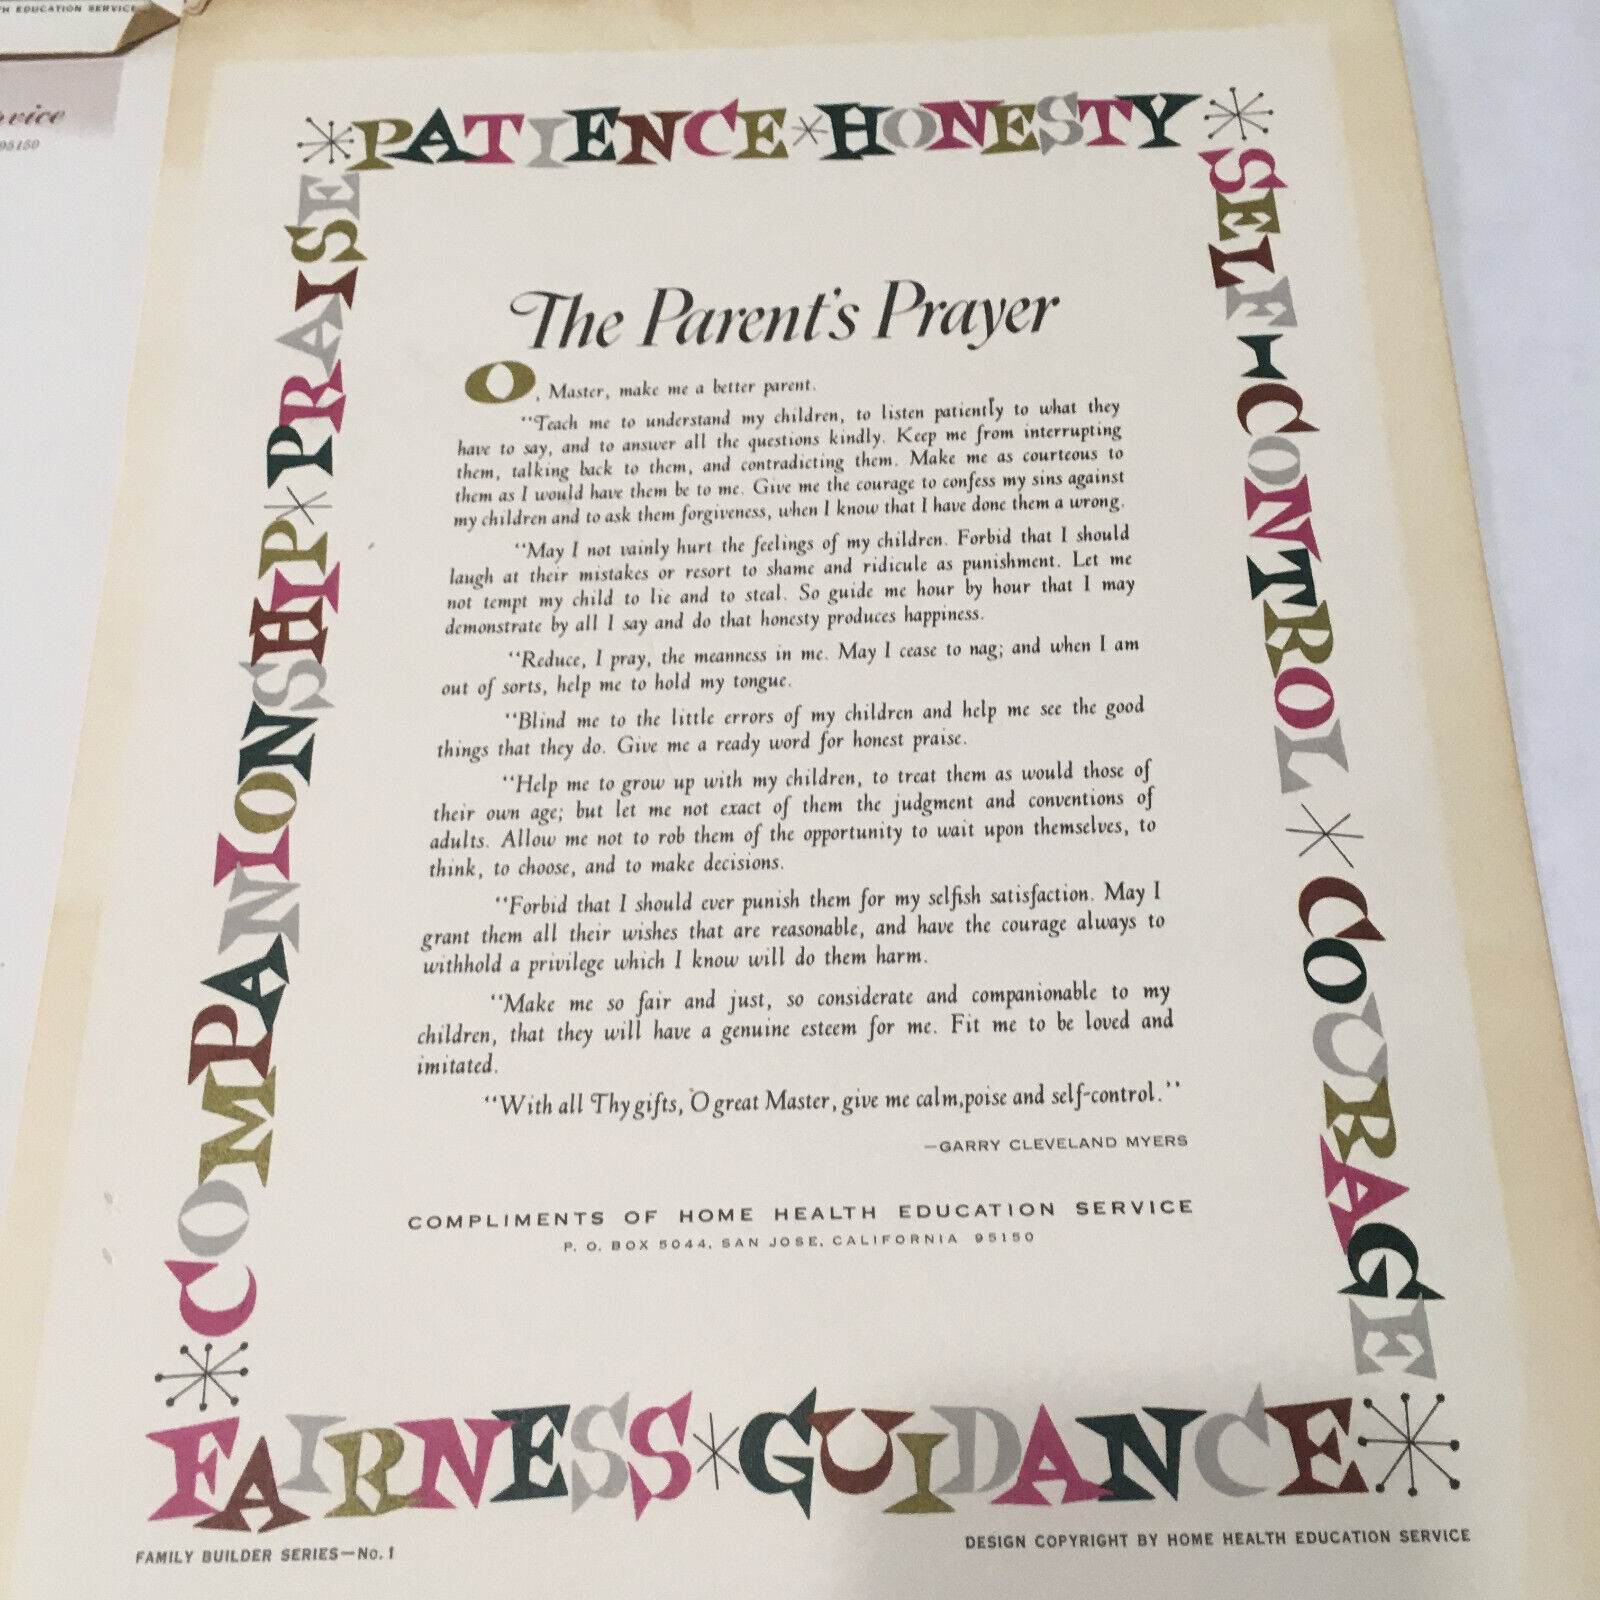 TH EDUCATION SERVICE
95150
PATIENCE HONESTY
SELF-CONTROL
COURAGE
PRAISE
COMPANIONSHIP
The Parent's Prayer
O, Master, make me a better parent.
"Teach me to understand my children, to listen patiently to what they
have to say, and to answer all the questions kindly. Keep me from interrupting
them, talking back to them, and contradicting them. Make me as courteous to
them as I would have them be to me. Give me the courage to confess my sins against
my children and to ask them forgiveness, when I know that I have done them a wrong.
"May I not vainly hurt the feelings of my children. Forbid that I should
laugh at their mistakes or resort to shame and ridicule as punishment. Let me
not tempt my child to lie and to steal. So guide me hour by hour that I may
demonstrate by all I say and do that honesty produces happiness.
"Reduce, I pray, the meanness in me. May I cease to nag; and when I am
out of sorts, help me to hold my tongue.
"Blind me to the little errors of my children and help me see the good
things that they do. Give me a ready word for honest praise.
"Help me to grow up with my children, to treat them as would those of
their own age; but let me not exact of them the judgment and conventions of
adults. Allow me not to rob them of the opportunity to wait upon themselves, to
think, to choose, and to make decisions.
"Forbid that I should ever punish them for my selfish satisfaction. May I
grant them all their wishes that are reasonable, and have the courage always to
withhold a privilege which I know will do them harm.
"Make me so fair and just, so considerate and companionable to my
children, that they will have a genuine esteem for me. Fit me to be loved and
imitated.
"With all Thy gifts, O great Master, give me calm, poise and self-control."
—GARRY CLEVELAND MYERS
COMPLIMENTS OF HOME HEALTH EDUCATION SERVICE
P. O. BOX 5044, SAN JOSE, CALIFORNIA 95150
FAIRNESS GUIDANCE
FAMILY BUILDER SERIES—No. 1
DESIGN COPYRIGHT BY HOME HEALTH EDUCATION SERVICE